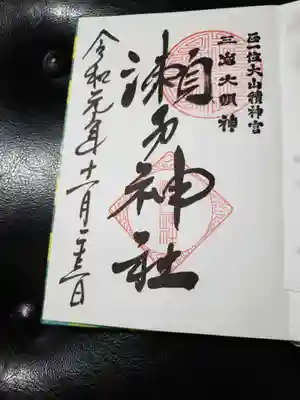 正一位大山積神宮
三島大明神
瀬戸神社
令和元年十一月二十三日